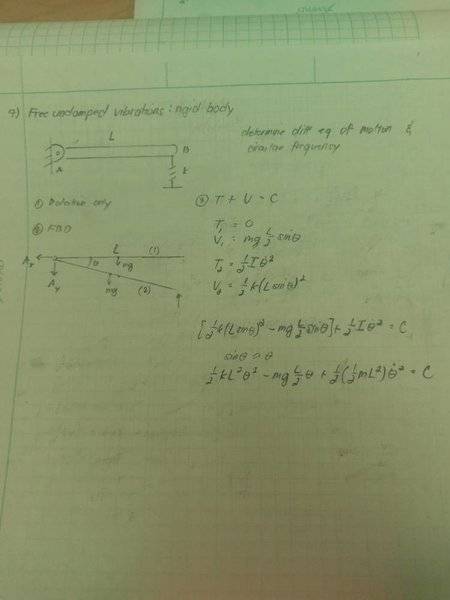 9) Free undamped vibrations: rigid body
determine diff eq of motion &
circular frequency
L
B
A
k
① Rotation only
② FBD
③ T + V = C
T₁ = 0
V₁ = mg L/2 sinθ
T₂ = 1/2 I θ̇²
V₂ = 1/2 k(L sinθ)²
Aₓ
A_y
L
(1)
θ
mg
mg
(2)
[1/2 k(L sinθ)² - mg L/2 sinθ] + 1/2 I θ̇² = C
sinθ ≈ θ
1/2 kL²θ² - mg L/2 θ + 1/2 (1/3 mL²) θ̇² = C